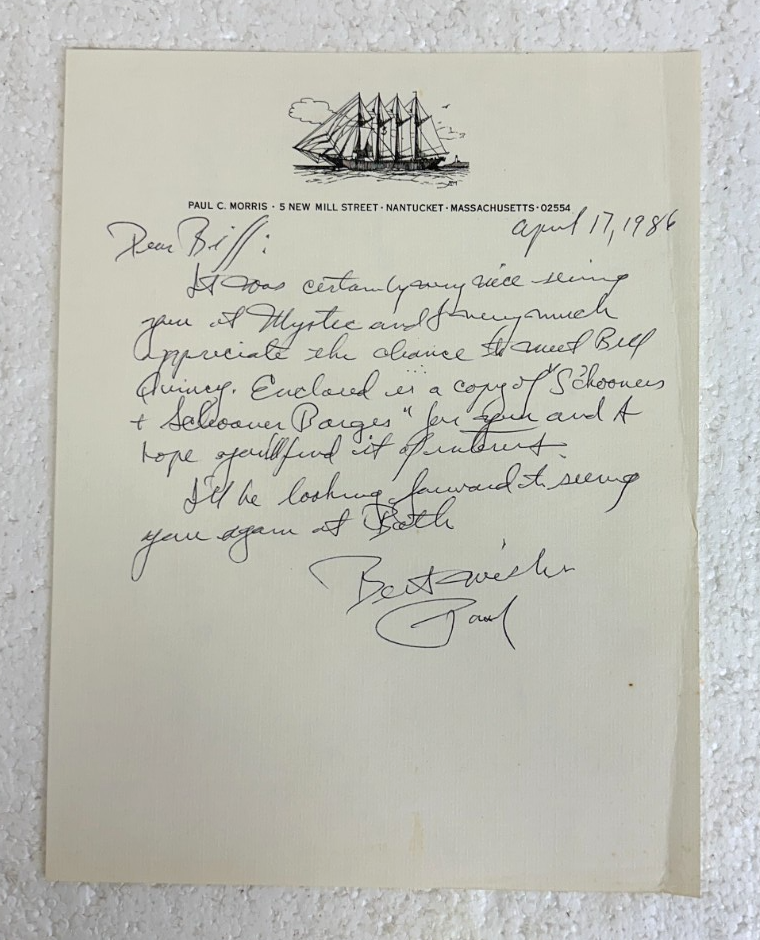 PAUL C. MORRIS · 5 NEW MILL STREET · NANTUCKET · MASSACHUSETTS · 02554
April 17, 1986
Dear Biff:
It was certainly very nice seeing
you at Mystic and I very much
appreciate the chance to meet Bill
Quincy. Enclosed is a copy of "Schooners
+ Schooner Barges" for you and I
hope you'll find it of interest.
I'll be looking forward to seeing
you again at Bath
Best wishes
Paul